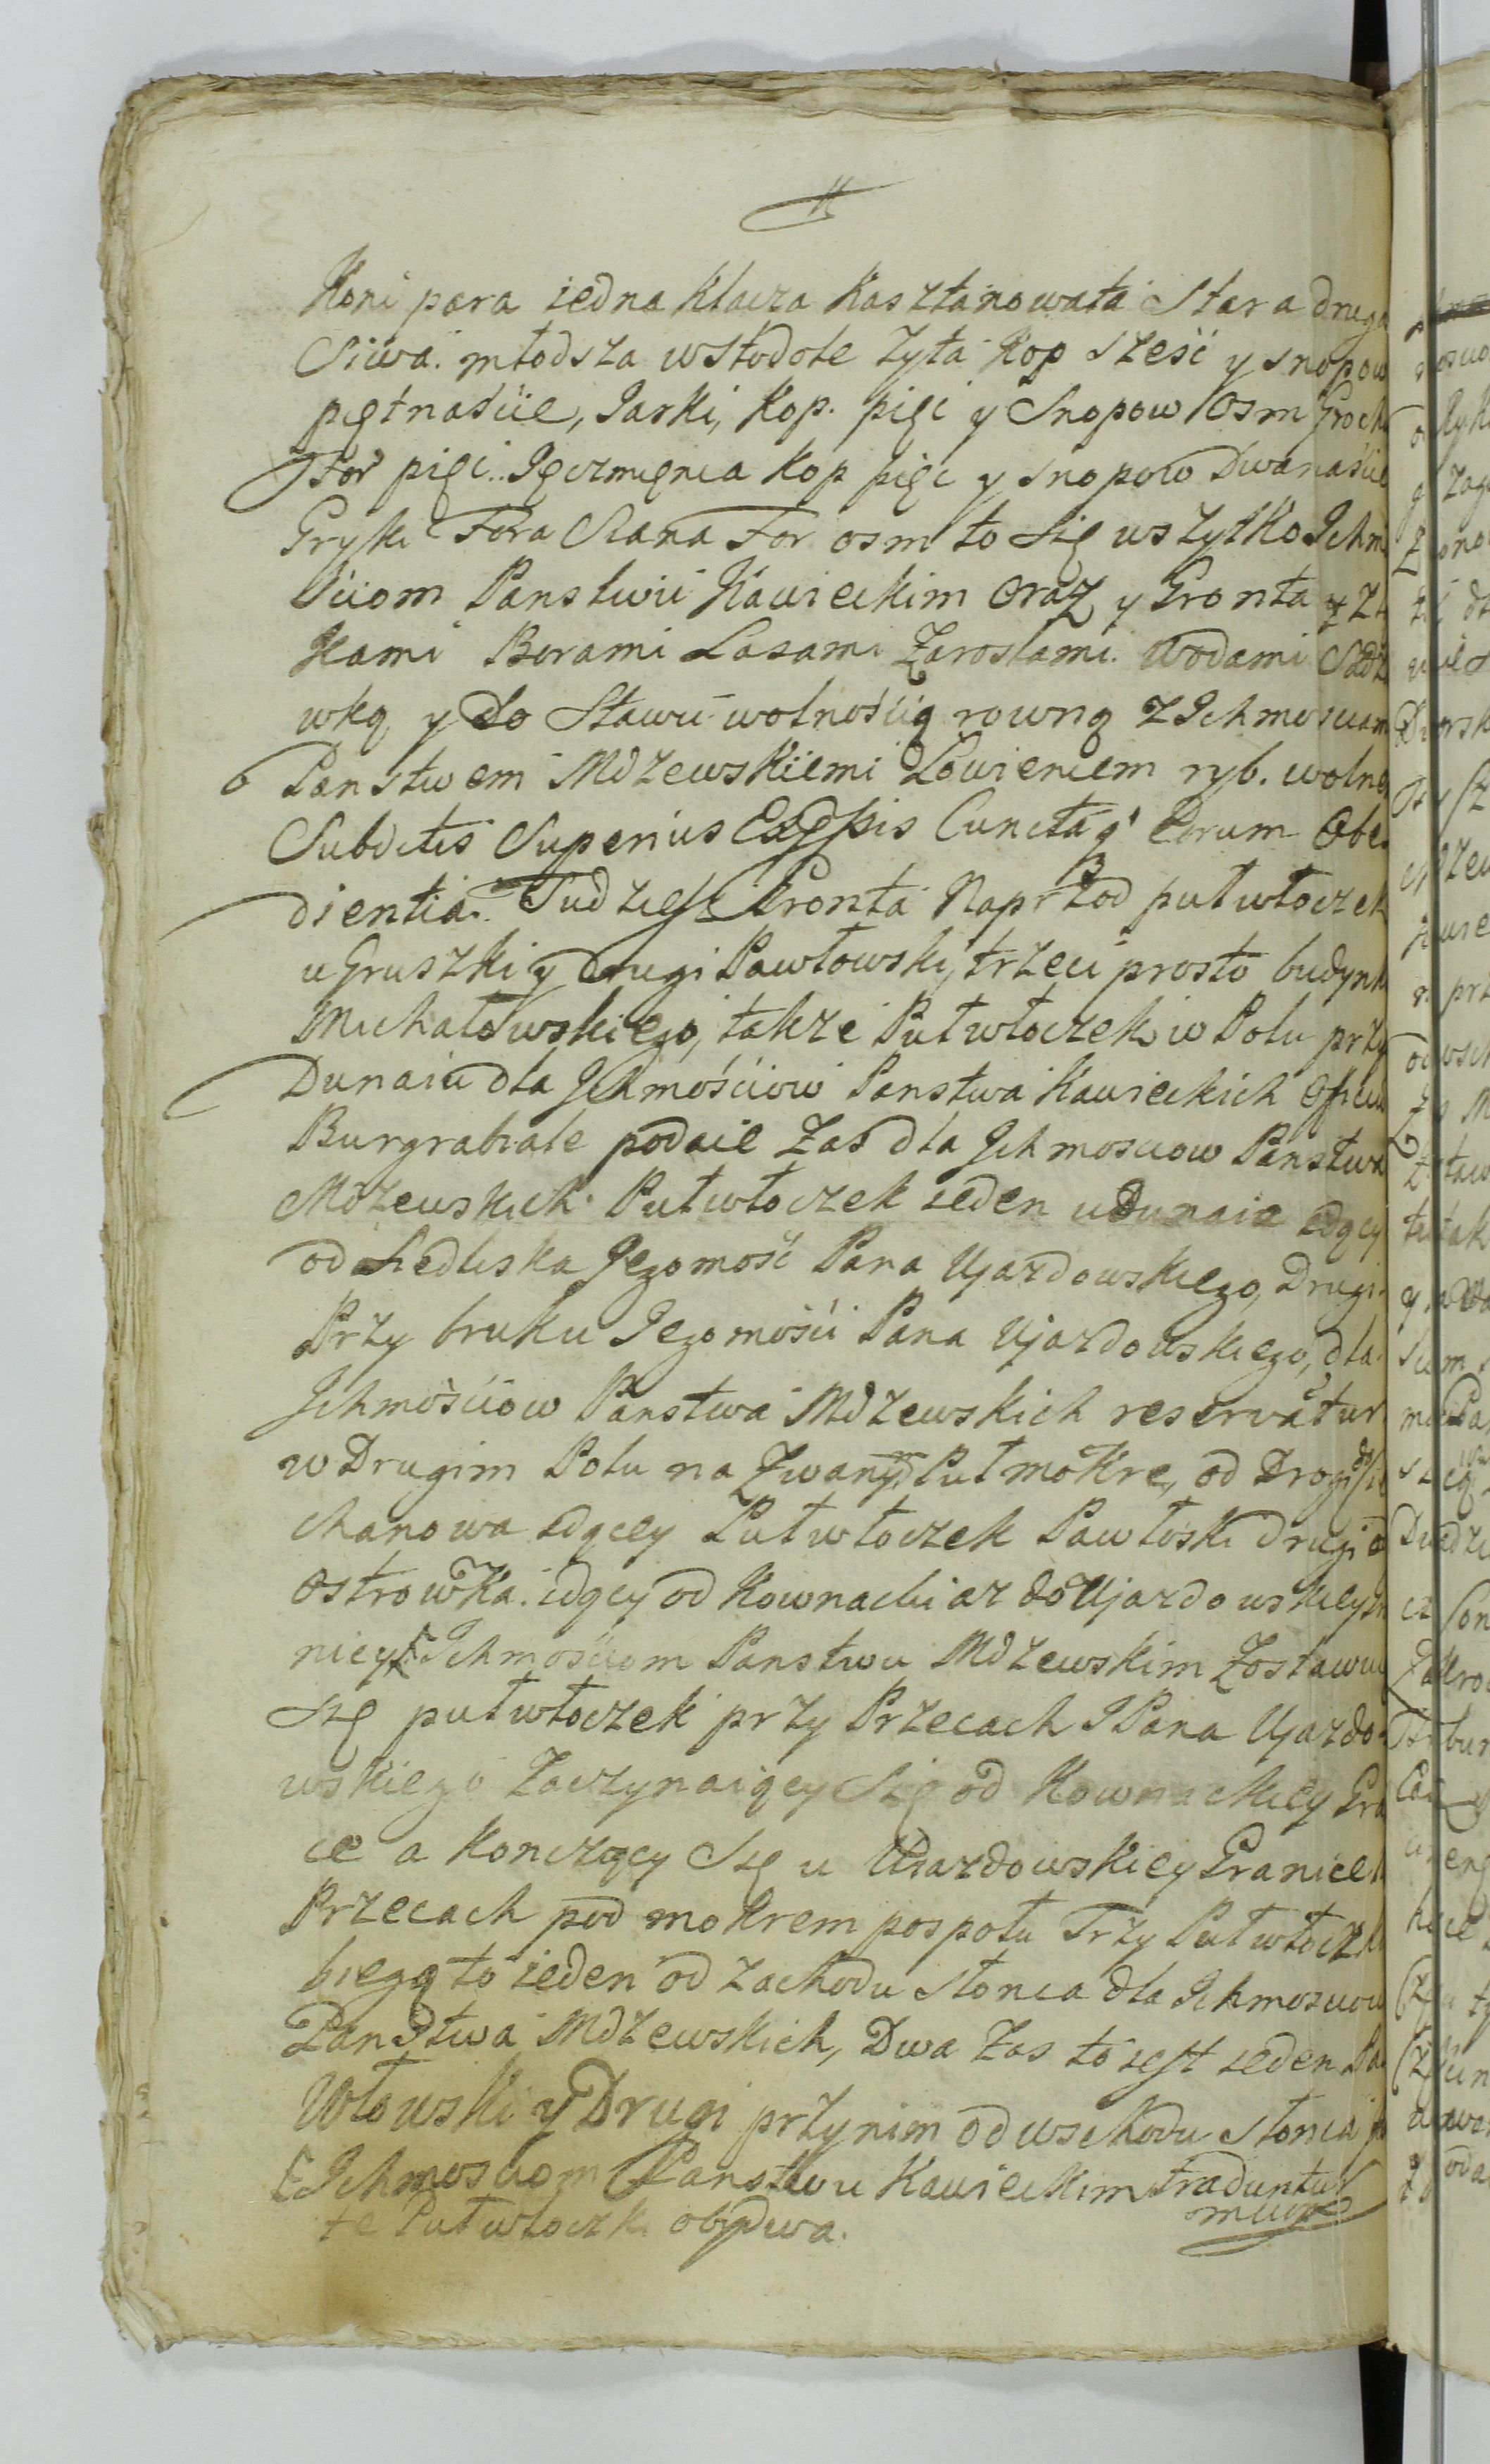 Koni para iedna Klacza Kasztanowata Stara druga
Siwa. młodsza wStodole Zyta Kop Sześć y snopow
piętnaście, Jarki, Kop. pięc y Snopow Osm Groch
For pięc.. Jęczmięnia Kop pięc y snopow Dwanaście
Gryki Fora Siana For osm to Się wszytko Ichm
Sciom Panstwu Kawieckim Oraz y Gronta
Kami Borami Lasami Zaroslami. Wodami Sadz
wką y do Stawu wolnością rowną z Ichmosciam
Panstwem Mdzewskiemi Łowieniem ryb. wolne
Subditis Superius Cunctaq' Eorum Obe
dientia. Tudziesz Gronta Naprzod pułwłoczek
u Gruszki y Drugi Pawłowski, trzeci prosto budynk
Michałowskiego, takze Pułwłoczek w Polu przy
Dunaiu dla Ichmościow Panstwa Kawieckich
Burgrabiale podaie Zas dla Ichmosciow Panstwa
Mdzewskich. Pułwłoczek ieden u Dunaia idący
od Siedliska Jegomość Pana Ujazdowskiego, Drugi
Przy bruku Jegomości Pana Ujazdowskiego, dla
Ichmościow Panstwa Mdzewskich reservatur
w Drugim Polu na Zwanym Pułmokre, od Drogi do Cie
chanowa idącey Pułwłoczek Pawłoski drugi o
Ostrowka. idący od Kownacki az do Ujazdowskiey
nicy Ichmościom Panstwu Mdzewskim Zostawuie
Się pułwłoczek przy Przecach JPana Ujazdo-
wskiego Zaczynaiący Się od Kownackiey Gra
ce a Konczący Się u Uiazdowskiey Granice
Przecach pod mokrem pospołu Trzy Pułwłoczki
biegą to ieden od Zachodu Słonca dla Ichmosciow
Panstwa Mdzewskich, Dwa Zas to iest ieden Pa
Włowski y Drugi przy nim od wschodu Słonca
Ichmosciom Panstwu Kawieckim traduntur
te Pułwłoczki obydwa.